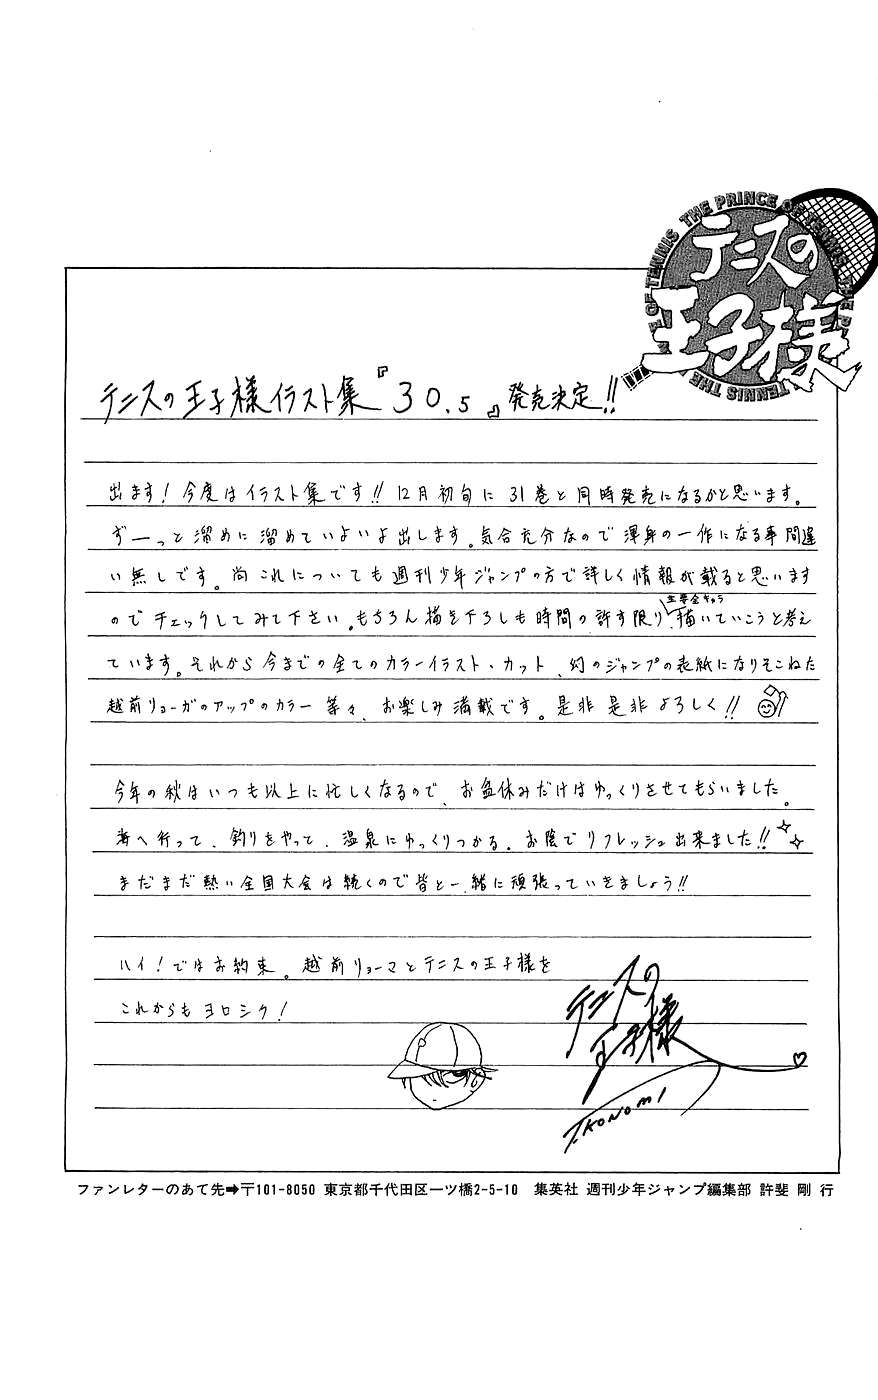 THE PRINCE OF TENNIS THE PRINCE OF TENNIS THE
テニスの
王子様
テニスの王子様イラスト集『30.5』発売決定!!
出ます!今度はイラスト集です!!12月初旬に31巻と同時発売になるかと思います。
ずーっと溜めに溜めていよいよ出します。気合充分なので渾身の一作になる事間違
い無しです。尚これについても週刊少年ジャンプの方で詳しく情報が載ると思います
のでチェックしてみて下さい。もちろん描き下ろしも時間の許す限り、主要全キャラ描いていこうと考え
ています。それから今までの全てのカラーイラスト、カット、幻のジャンプの表紙になりそこねた
越前リョーガのアップのカラー等々、お楽しみ満載です。是非是非よろしく!!
今年の秋はいつも以上に忙しくなるので、お盆休みだけはゆっくりさせてもらいました。
海へ行って、釣りをやって、温泉にゆっくりつかる。お陰でリフレッシュ出来ました!!
まだまだ熱い全国大会は続くので皆と一緒に頑張っていきましょう!!
ハイ!ではお約束。越前リョーマとテニスの王子様を
これからもヨロシク!
テニスの
王子様
T.KONOMI
ファンレターのあて先➡〒101-8050 東京都千代田区一ツ橋2-5-10 集英社 週刊少年ジャンプ編集部 許斐 剛 行